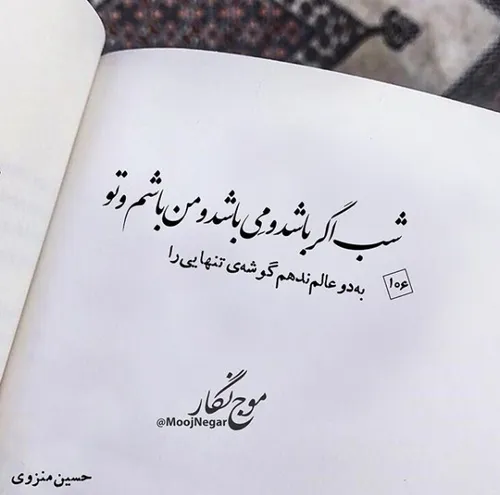 شب اگر باشد و می باشد و من باشم و تو
به دو عالم ندهم گوشه‌ی تنهایی را
۱۰۶
موج نگار
@MoojNegar
حسین منزوی